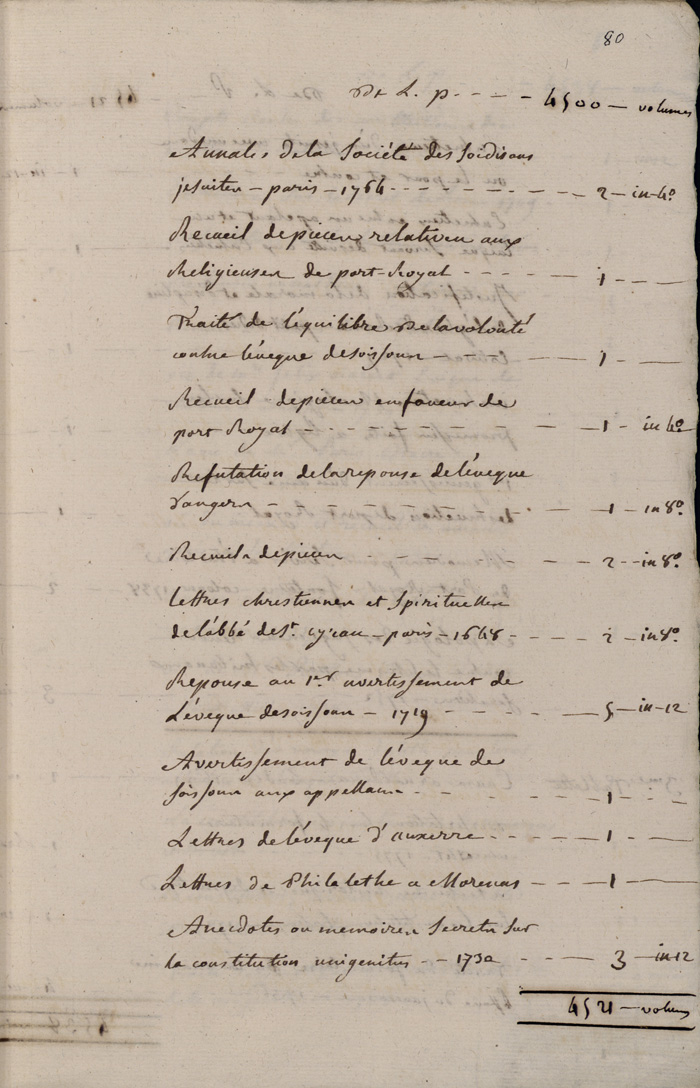 80
De L. p. - - - - 4500 - volumes
Annales de la Société des soidisans
jesuites - paris - 1764 - - - - - 2 - in-4°
Recueil de pieces relatives aux
Religieuses de port-Royal - - - - 1 - -
Traité de l'équilibre de la volonté
contre l'éveque de soissons - - - - 1 - -
Recueil de pieces en faveur de
port Royal - - - - - 1 - in 4°
Refutation de la reponse de l'éveque
d'angers - - - - - 1 - in 8°
Recueils de pieces - - - - 2 - in 8°
lettres chrestiennes et spirituelles
de l'abbé de St. cyran - paris - 1648 - - - - 2 - in 8°
Reponse au 1er avertissement de
L'éveque de soissons - 1719 - - - - 5 - in-12
Avertissement de l'éveque de
soissons aux appellans - - - - 1 - -
Lettres de l'éveque d'auxerre - - - - 1 - -
Lettres de Philalethe a Morenas - - - 1 - -
Anecdotes ou memoires secrets sur
la constitution unigenitus - - 1730 - - - - 3 - in 12
4521 - volumes